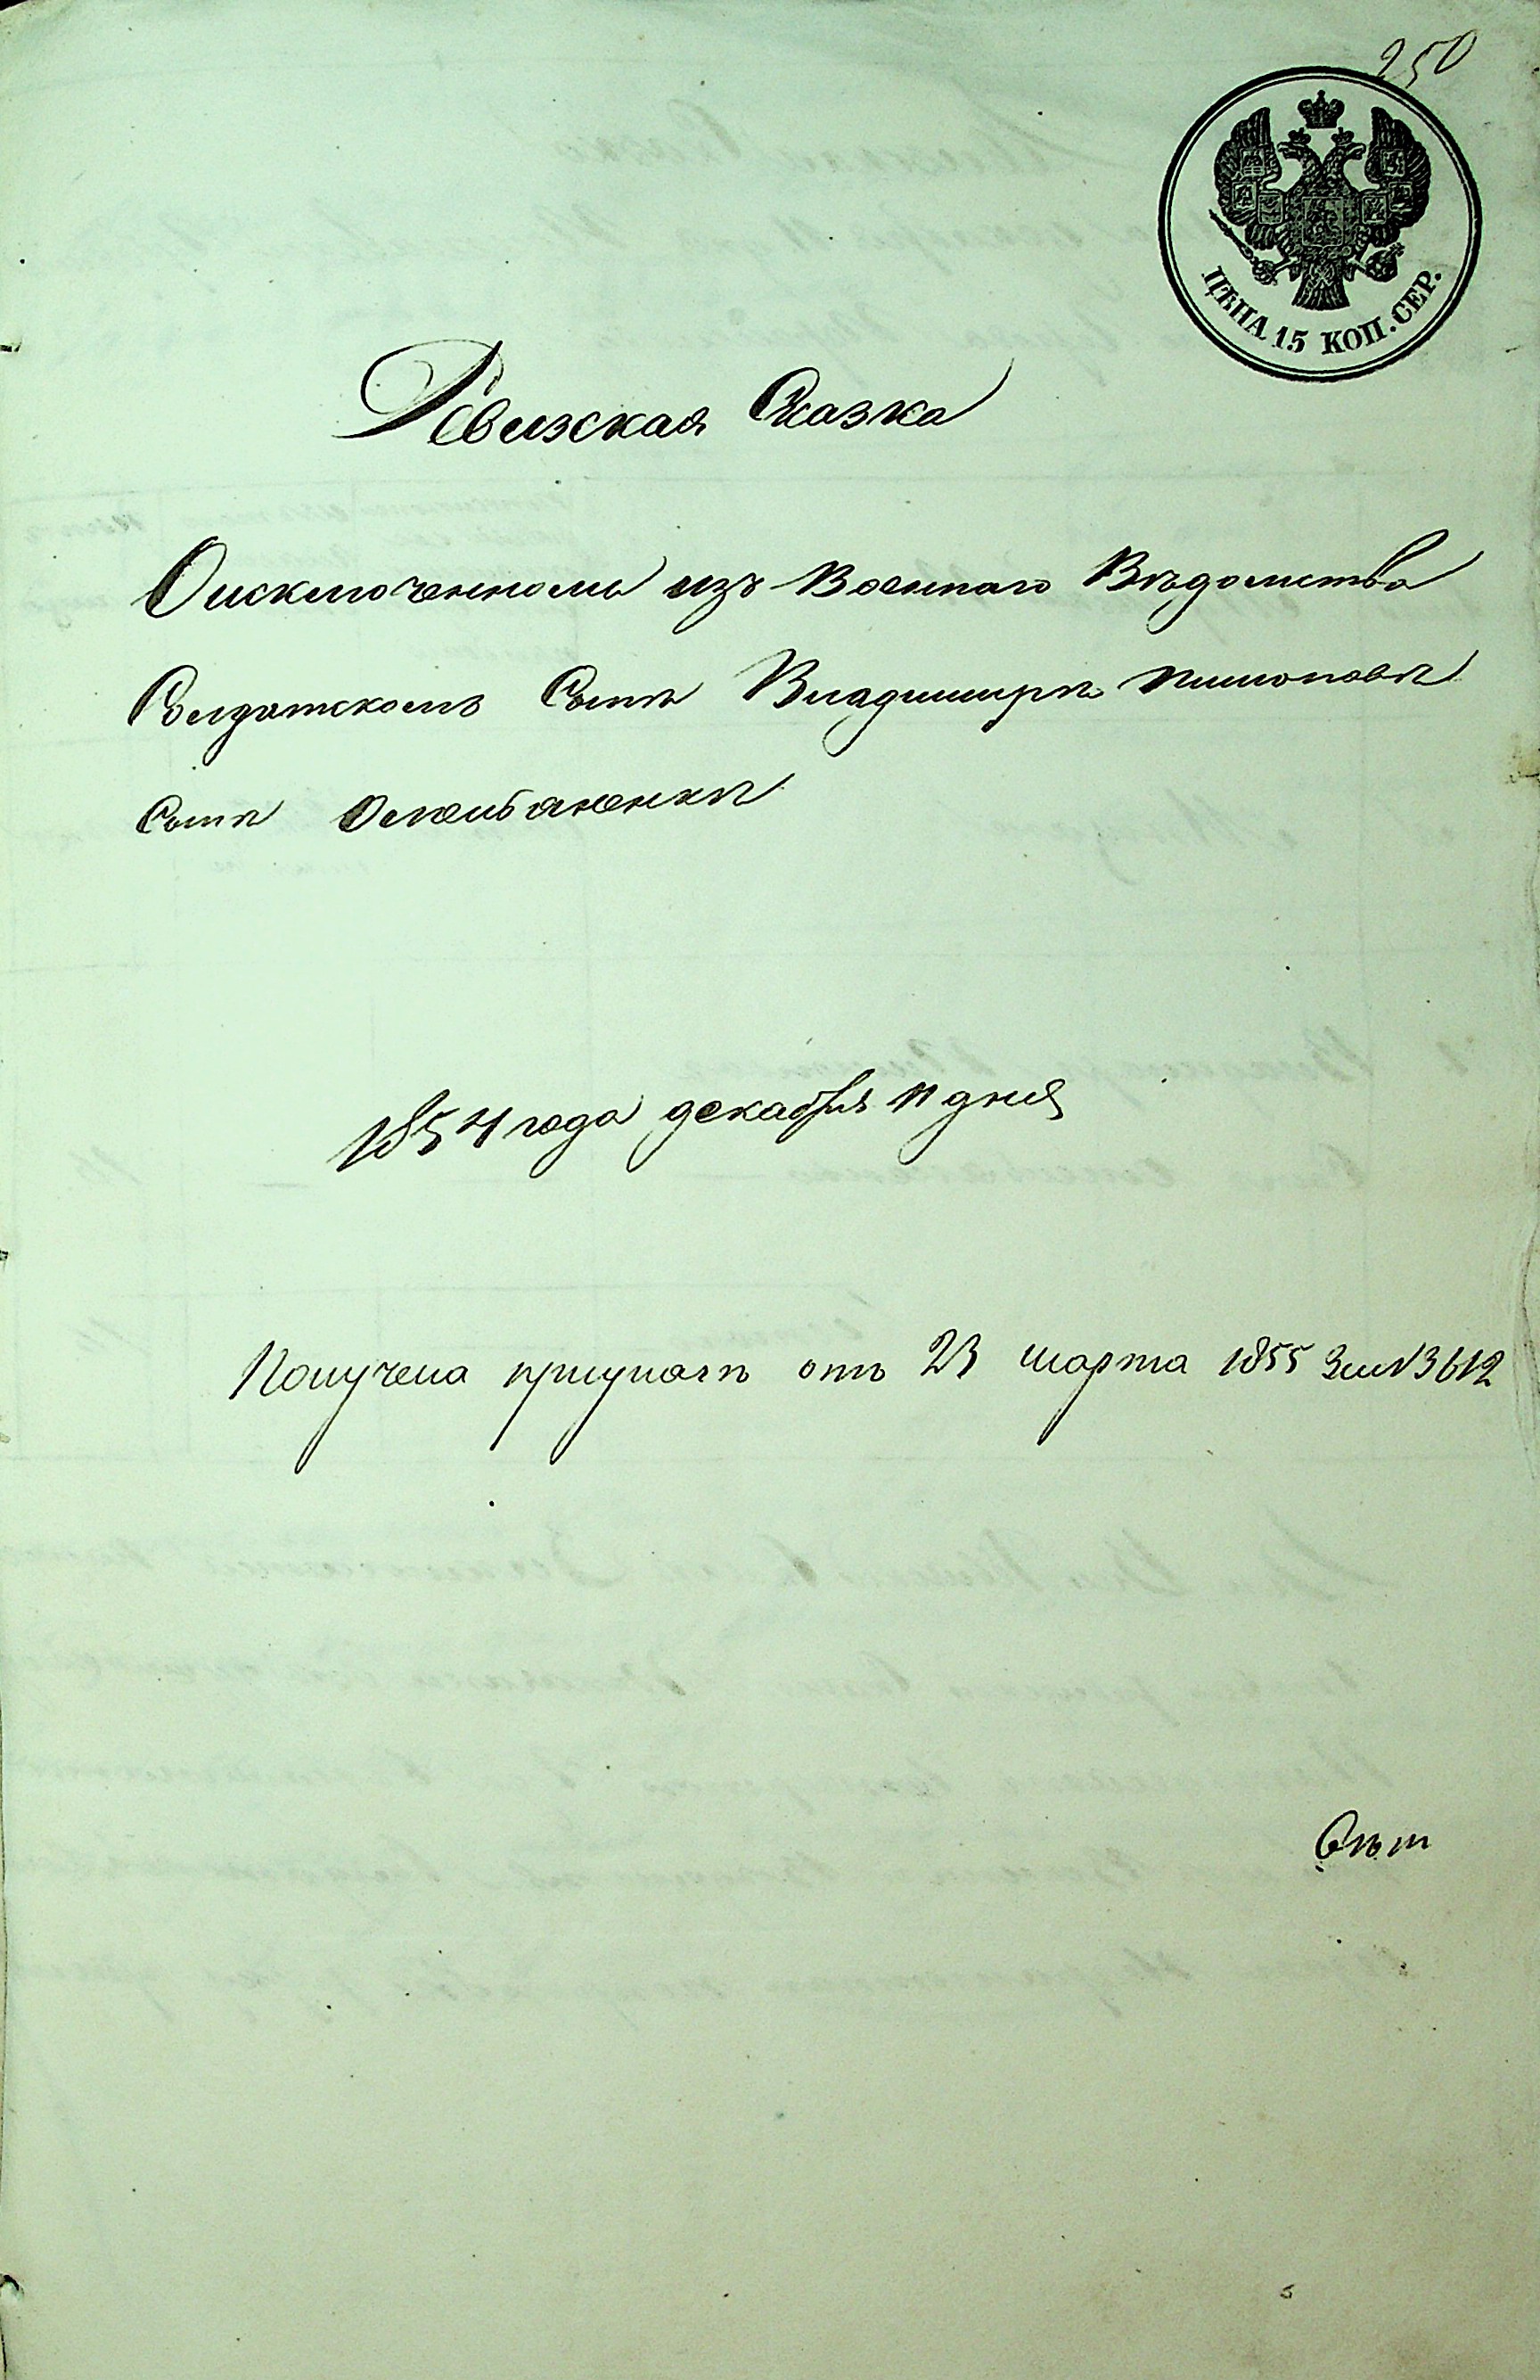 250
ЦѢНА 15 КОП. СЕР.
Ревизская Сказка
О исключенномъ изъ Военнаго Вѣдомства
Солдатскомъ Сынѣ Владимирѣ Пимоновѣ
Сынѣ
1854 года декабря 11 дня
Получена при указѣ отъ 23 марта 1855 За №3612